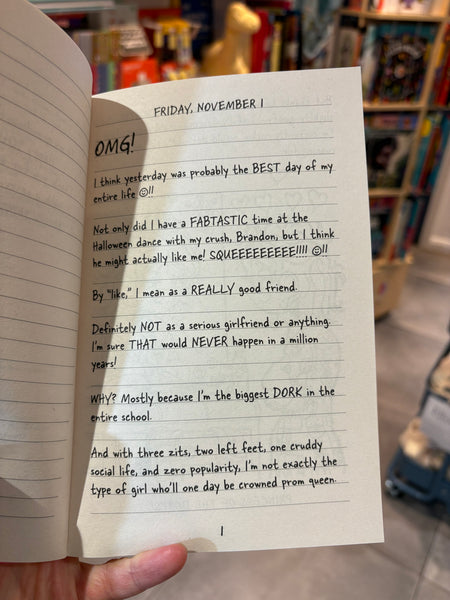 FRIDAY, NOVEMBER 1
OMG!
I think yesterday was probably the BEST day of my
entire life ☺!!
Not only did I have a FABTASTIC time at the
Halloween dance with my crush, Brandon, but I think
he might actually like me! SQUEEEEEEEEE!!!! ☺!!
By "like," I mean as a REALLY good friend.
Definitely NOT as a serious girlfriend or anything.
I'm sure THAT would NEVER happen in a million
years!
WHY? Mostly because I'm the biggest DORK in the
entire school.
And with three zits, two left feet, one cruddy
social life, and zero popularity, I'm not exactly the
type of girl who'll one day be crowned prom queen.
1